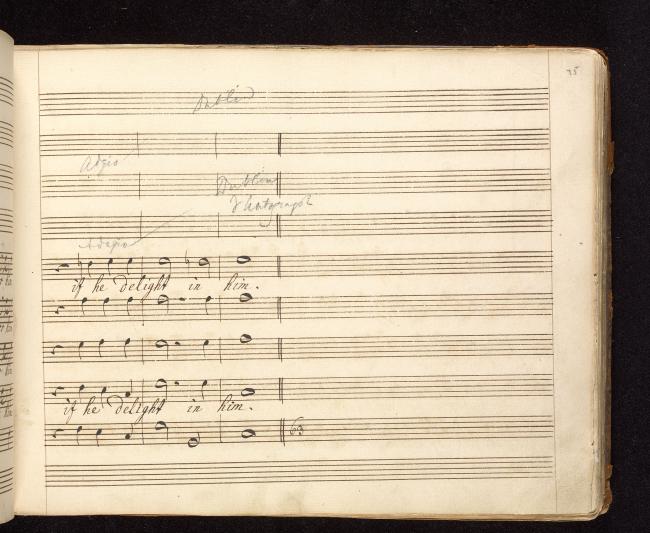 75
Dublin
Adgio
Dublin
& Autograph
Adagio
if he delight in him.
if he delight in him.
63